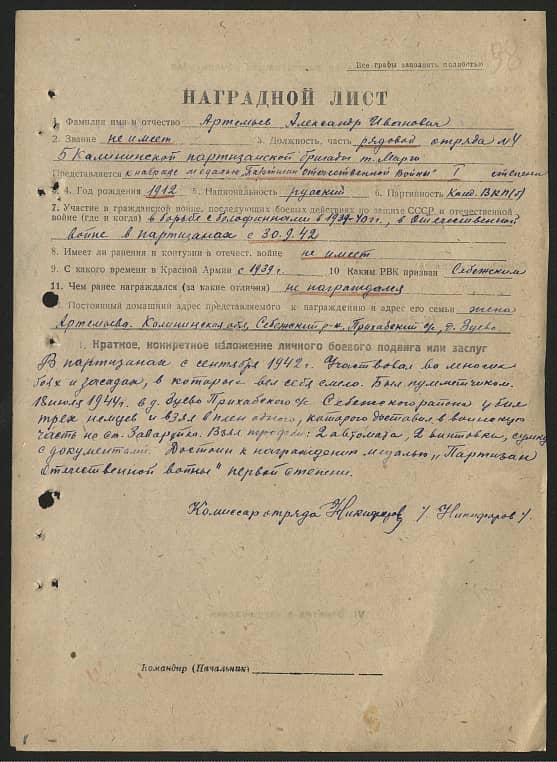 98
Все графы заполнять полностью
НАГРАДНОЙ ЛИСТ
1. Фамилия имя и отчество Артемьев Александр Иванович
2. Звание не имеет 3. Должность, часть рядовой отряда №4
5 Калининской партизанской бригады т. Марго
Представляется к награде медалью „Партизан отечественной войны" I степени
4. Год рождения 1912 5. Национальность русский 6. Партийность Канд. ВКП(б)
7. Участие в гражданской войне, последующих боевых действиях по защите СССР и отечественной
войне (где и когда) в борьбе с белофиннами в 1939-40 гг., в Отечественной
войне в партизанах с 30.9.42
8. Имеет ли ранения и контузии в отечест. войне не имеет
9. С какого времени в Красной Армии с 1939 г. 10 Каким РВК призван Себежским
11. Чем ранее награждался (за какие отличия) не награждался
Постоянный домашний адрес представляемого к награждению и адрес его семьи жена
Артемьева. Калининская обл, Себежский р-н, Прихабский с/с, д. Зуево
I. Краткое, конкретное изложение личного боевого подвига или заслуг
В партизанах с сентября 1942 г. Участвовал во многих
боях и засадах, в которых вел себя смело. Был пулеметчиком.
18 июля 1944 г. в д. Зуево Прихабского с/с Себежского района убил
трех немцев и взял в плен одного, которого доставил в воинскую
часть на ст. Заваруйка. Взял трофеи: 2 автомата, 2 винтовки, сумку
с документами. Достоин к награждению медалью „Партизан
отечественной войны" первой степени.
Комиссар отряда Никифоров /. Никифоров /.
Командир (Начальник)